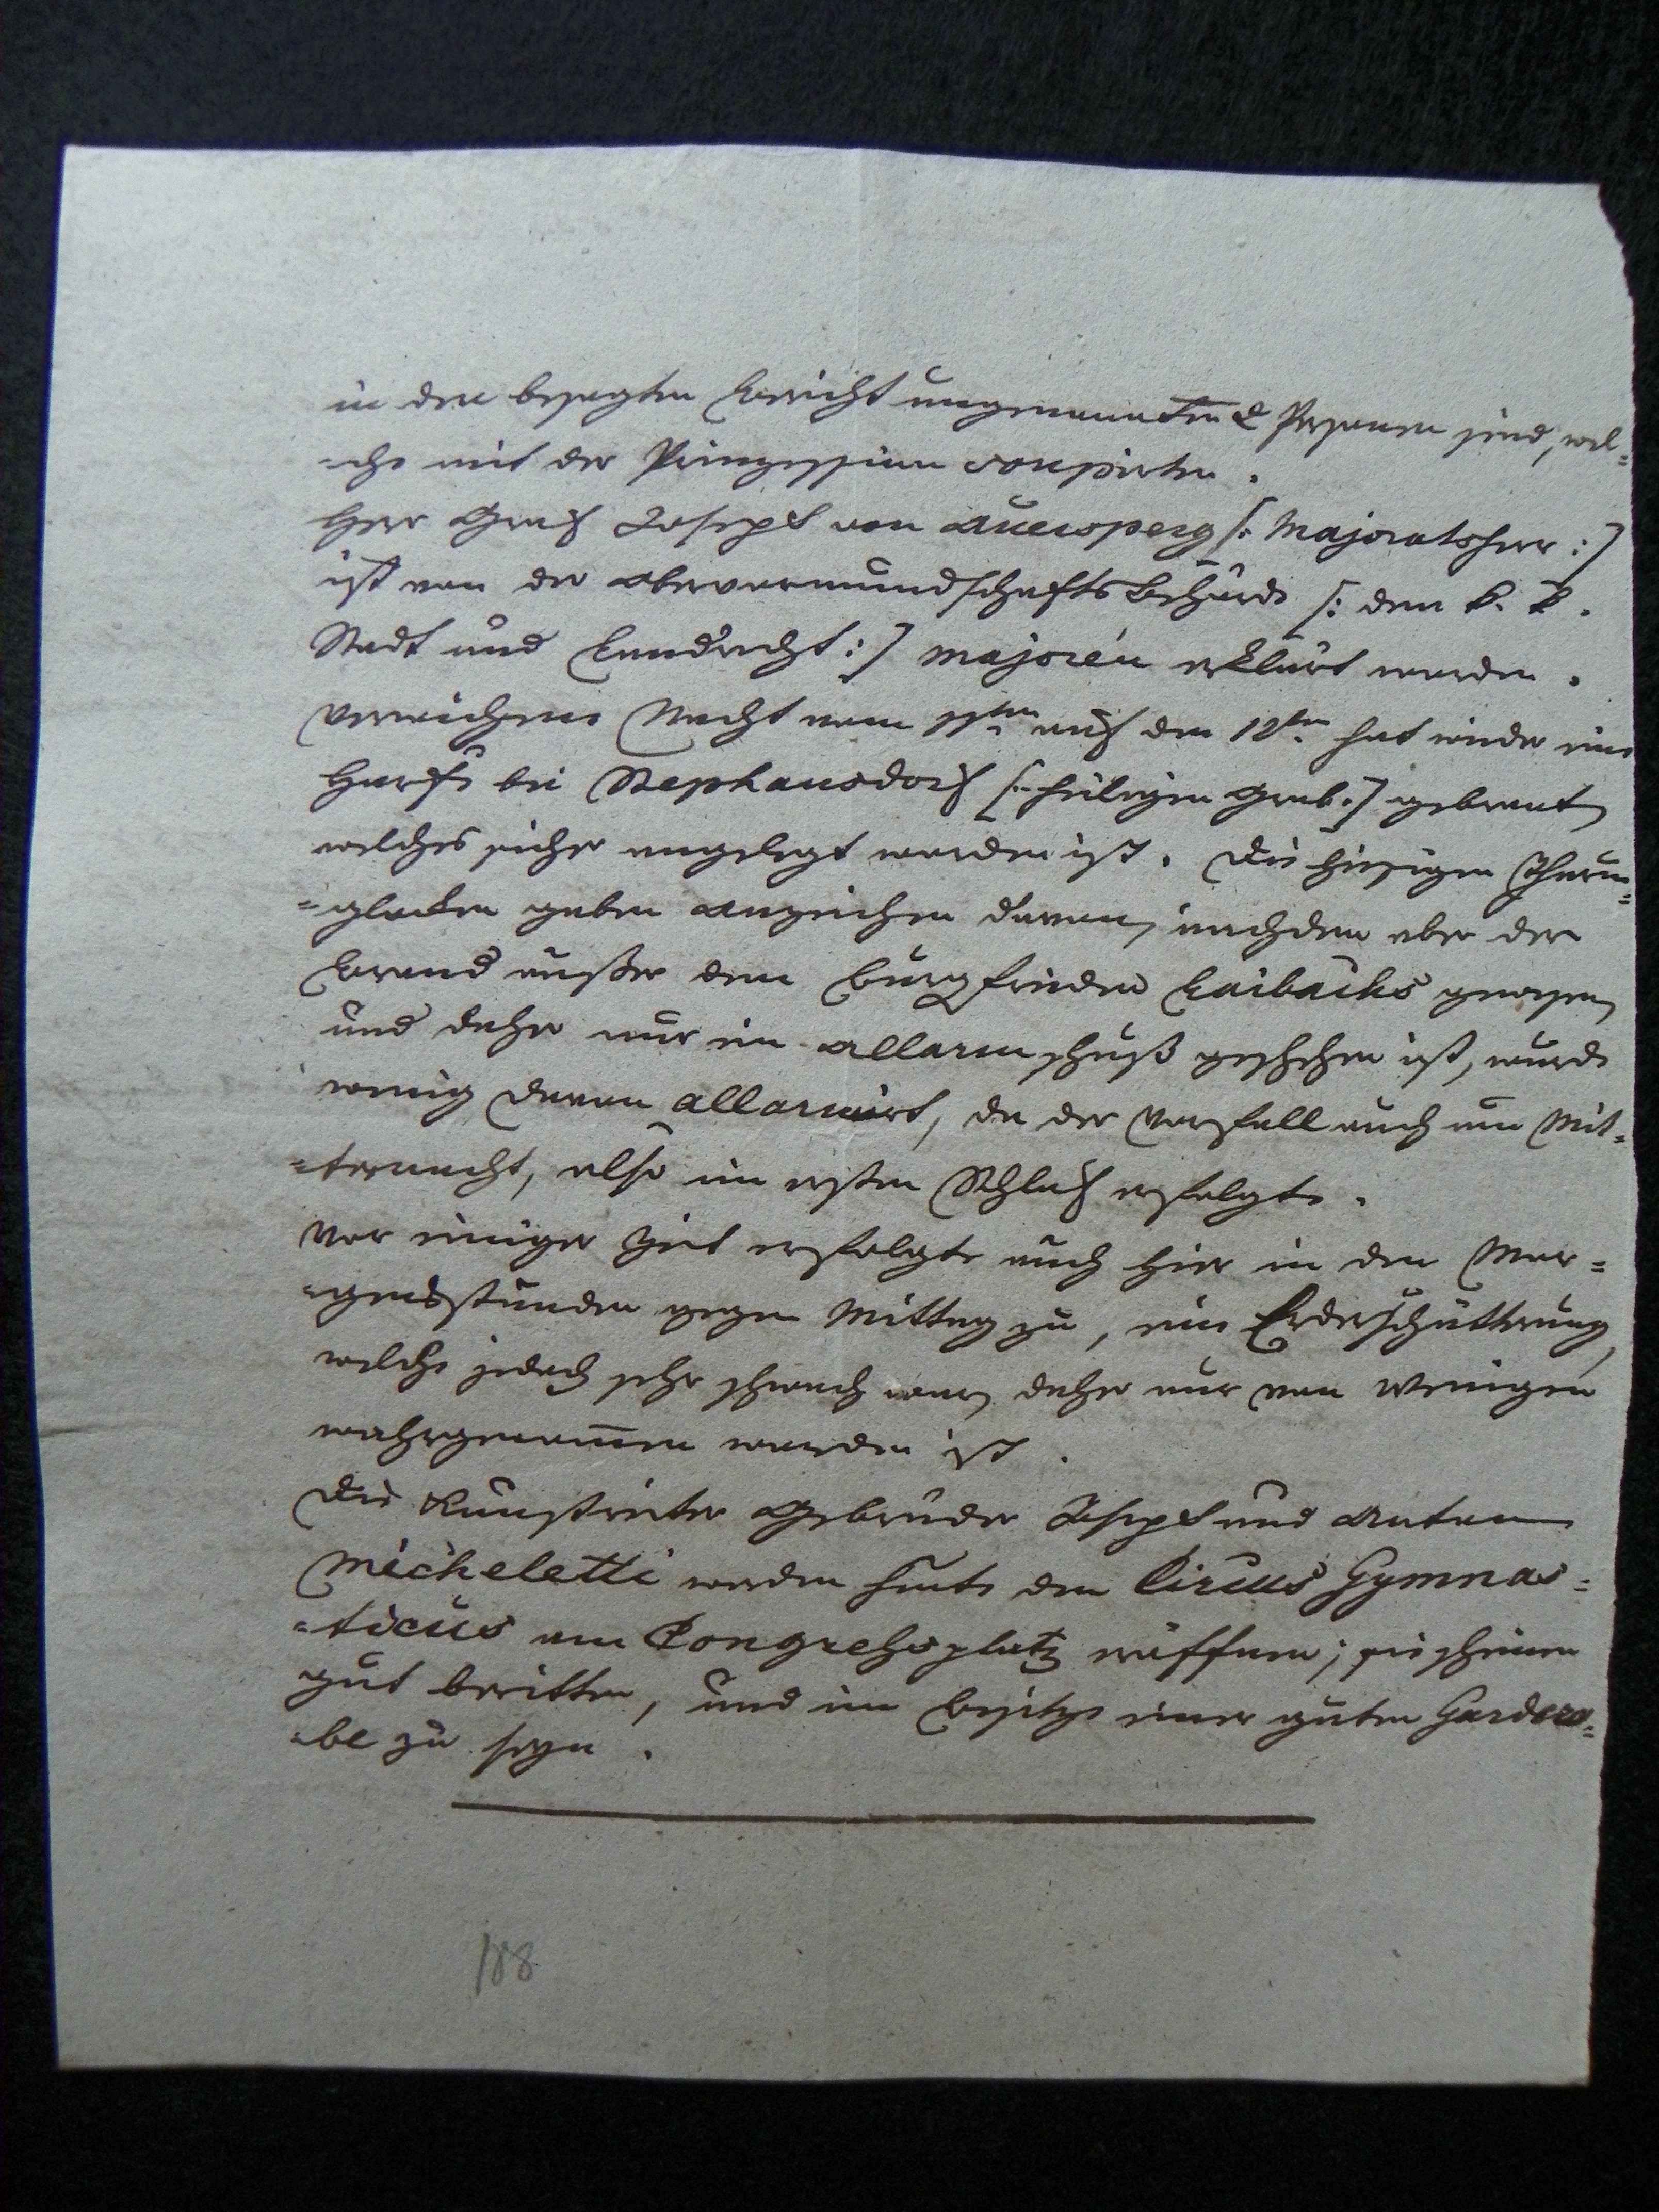 in den besagten Bericht ungenannten 2 Personen sind, wel=
=che mit der Prinzessinn soupirten.
Herr Graf Joseph von Auersperg [: Majoratsherr :]
ist von der Obervormundschafts Behörde [: dem k. k.
Stadt und Landrecht :] majorén erklärt worden.
Verwichene Nacht vom 11ten auf den 12ten hat wieder eine
Harfe bei Stephansdorf [: heiligen Grab :] gebrant,
welches sicher angelegt worden ist. Die hiesigen Thurm=
=glocken gaben Anzeichen davon, nachdem aber der
Brand außer dem Burgfrieden Laibachs gewesen,
und daher nur ein Allarmschuß geschehen ist, wurde
wenig davon allarmirt, da der Vorfall auch um Mit=
=ternacht, also im ersten Schlaf erfolgte.
Vor einiger Zeit erfolgte auch hier in den Mor=
=gensstunden gegen Mittag zu, eine Erderschütterung,
welche jedoch sehr schwach war, daher nur von Wenigen
wahrgenommen worden ist.
Die Kunstreiter Gebrüder Joseph und Anton
Micheletti werden heute den Circus Gymnas=
=ticus am Congreßplatz eröffnen; sie scheinen
gut beritten, und im Besitze einer guten Gardero=
=be zu seyn.
188